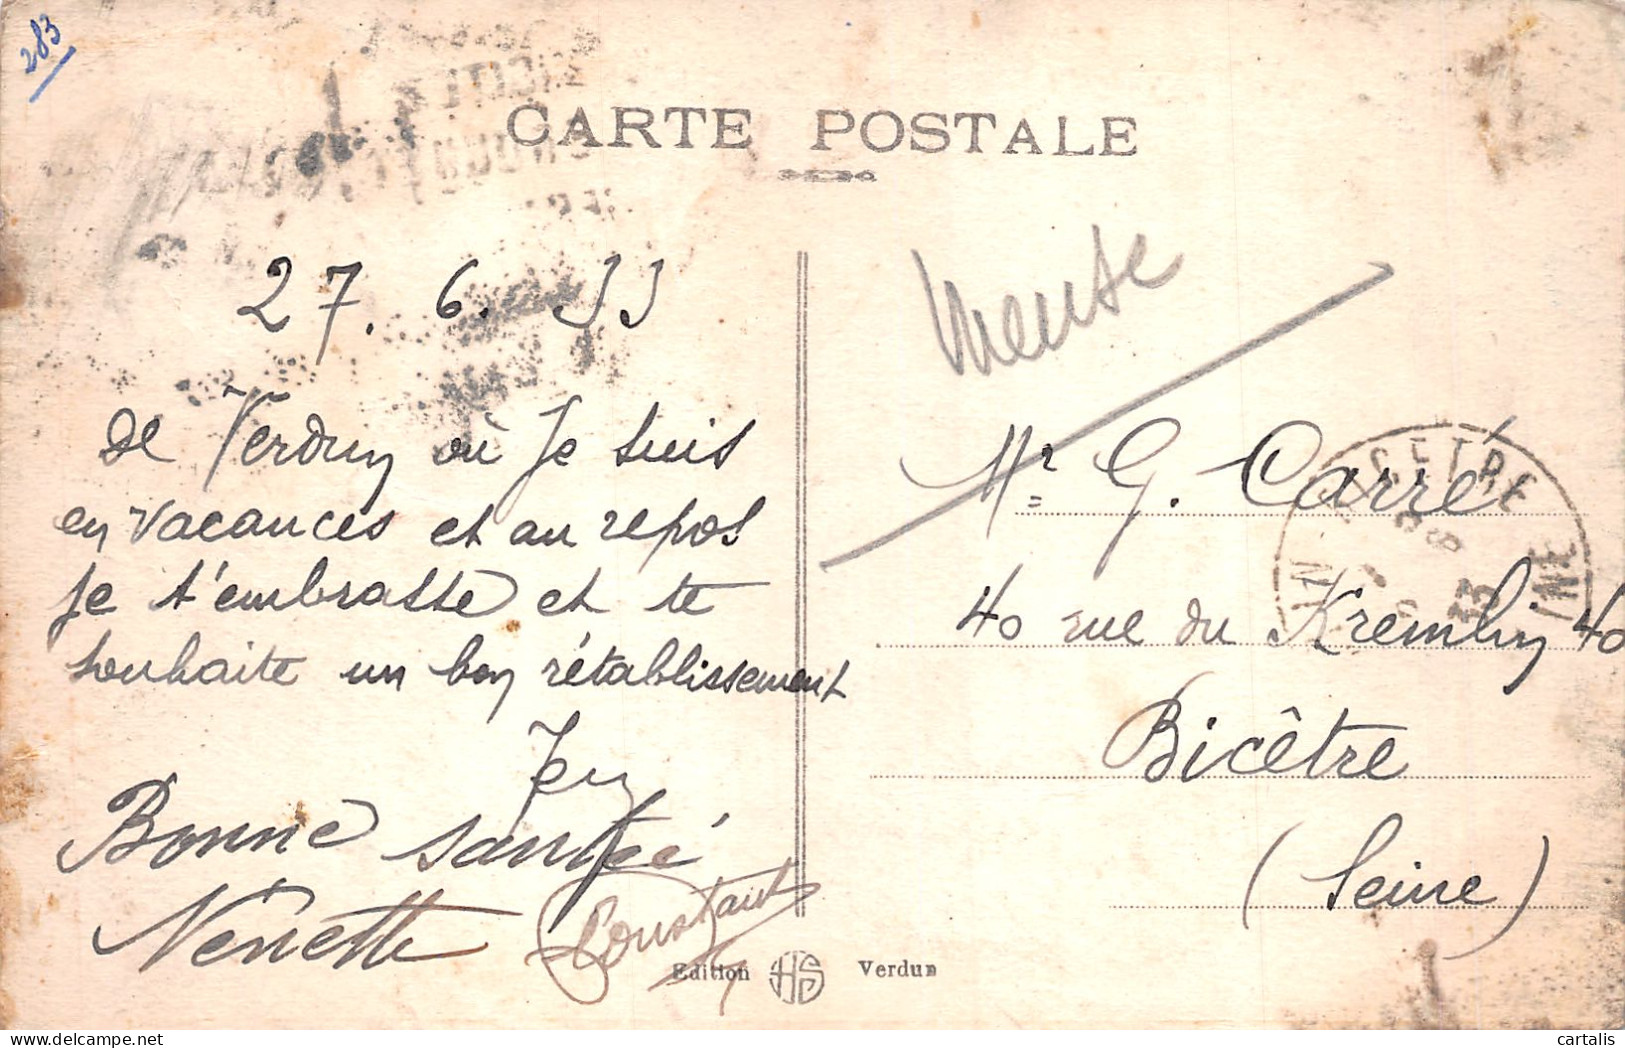 283
CARTE POSTALE
27. 6. 33
Meuse
de Verdun où je suis
en vacances et au repos
je t'embrasse et te
souhaite un bon rétablissement
Bonne santé
Nénette
Constant
Mr G. Carré
40 rue du Kremlin 40
Bicêtre
(Seine)
BICETRE
33
Edition HS Verdun
cartalis